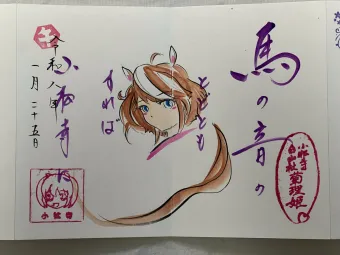 馬の音の
とどとも
すれば
小松寺に
令和八年
一月二十五日
小松寺
白山社
菊理姫
小松寺